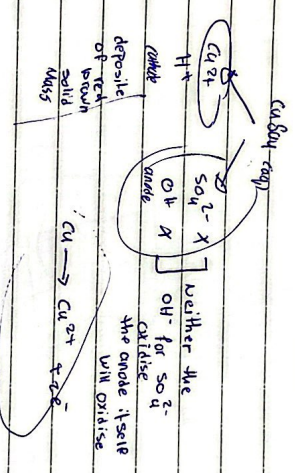 CuSO4 (aq)
Cu2+
H+
cathode
deposite
of red
brown
solid
Mass
SO4 2- X
OH- X
anode
Neither the
OH- for SO4 2-
oxidise
the anode itself
will oxidise
Cu → Cu2+ + 2e-